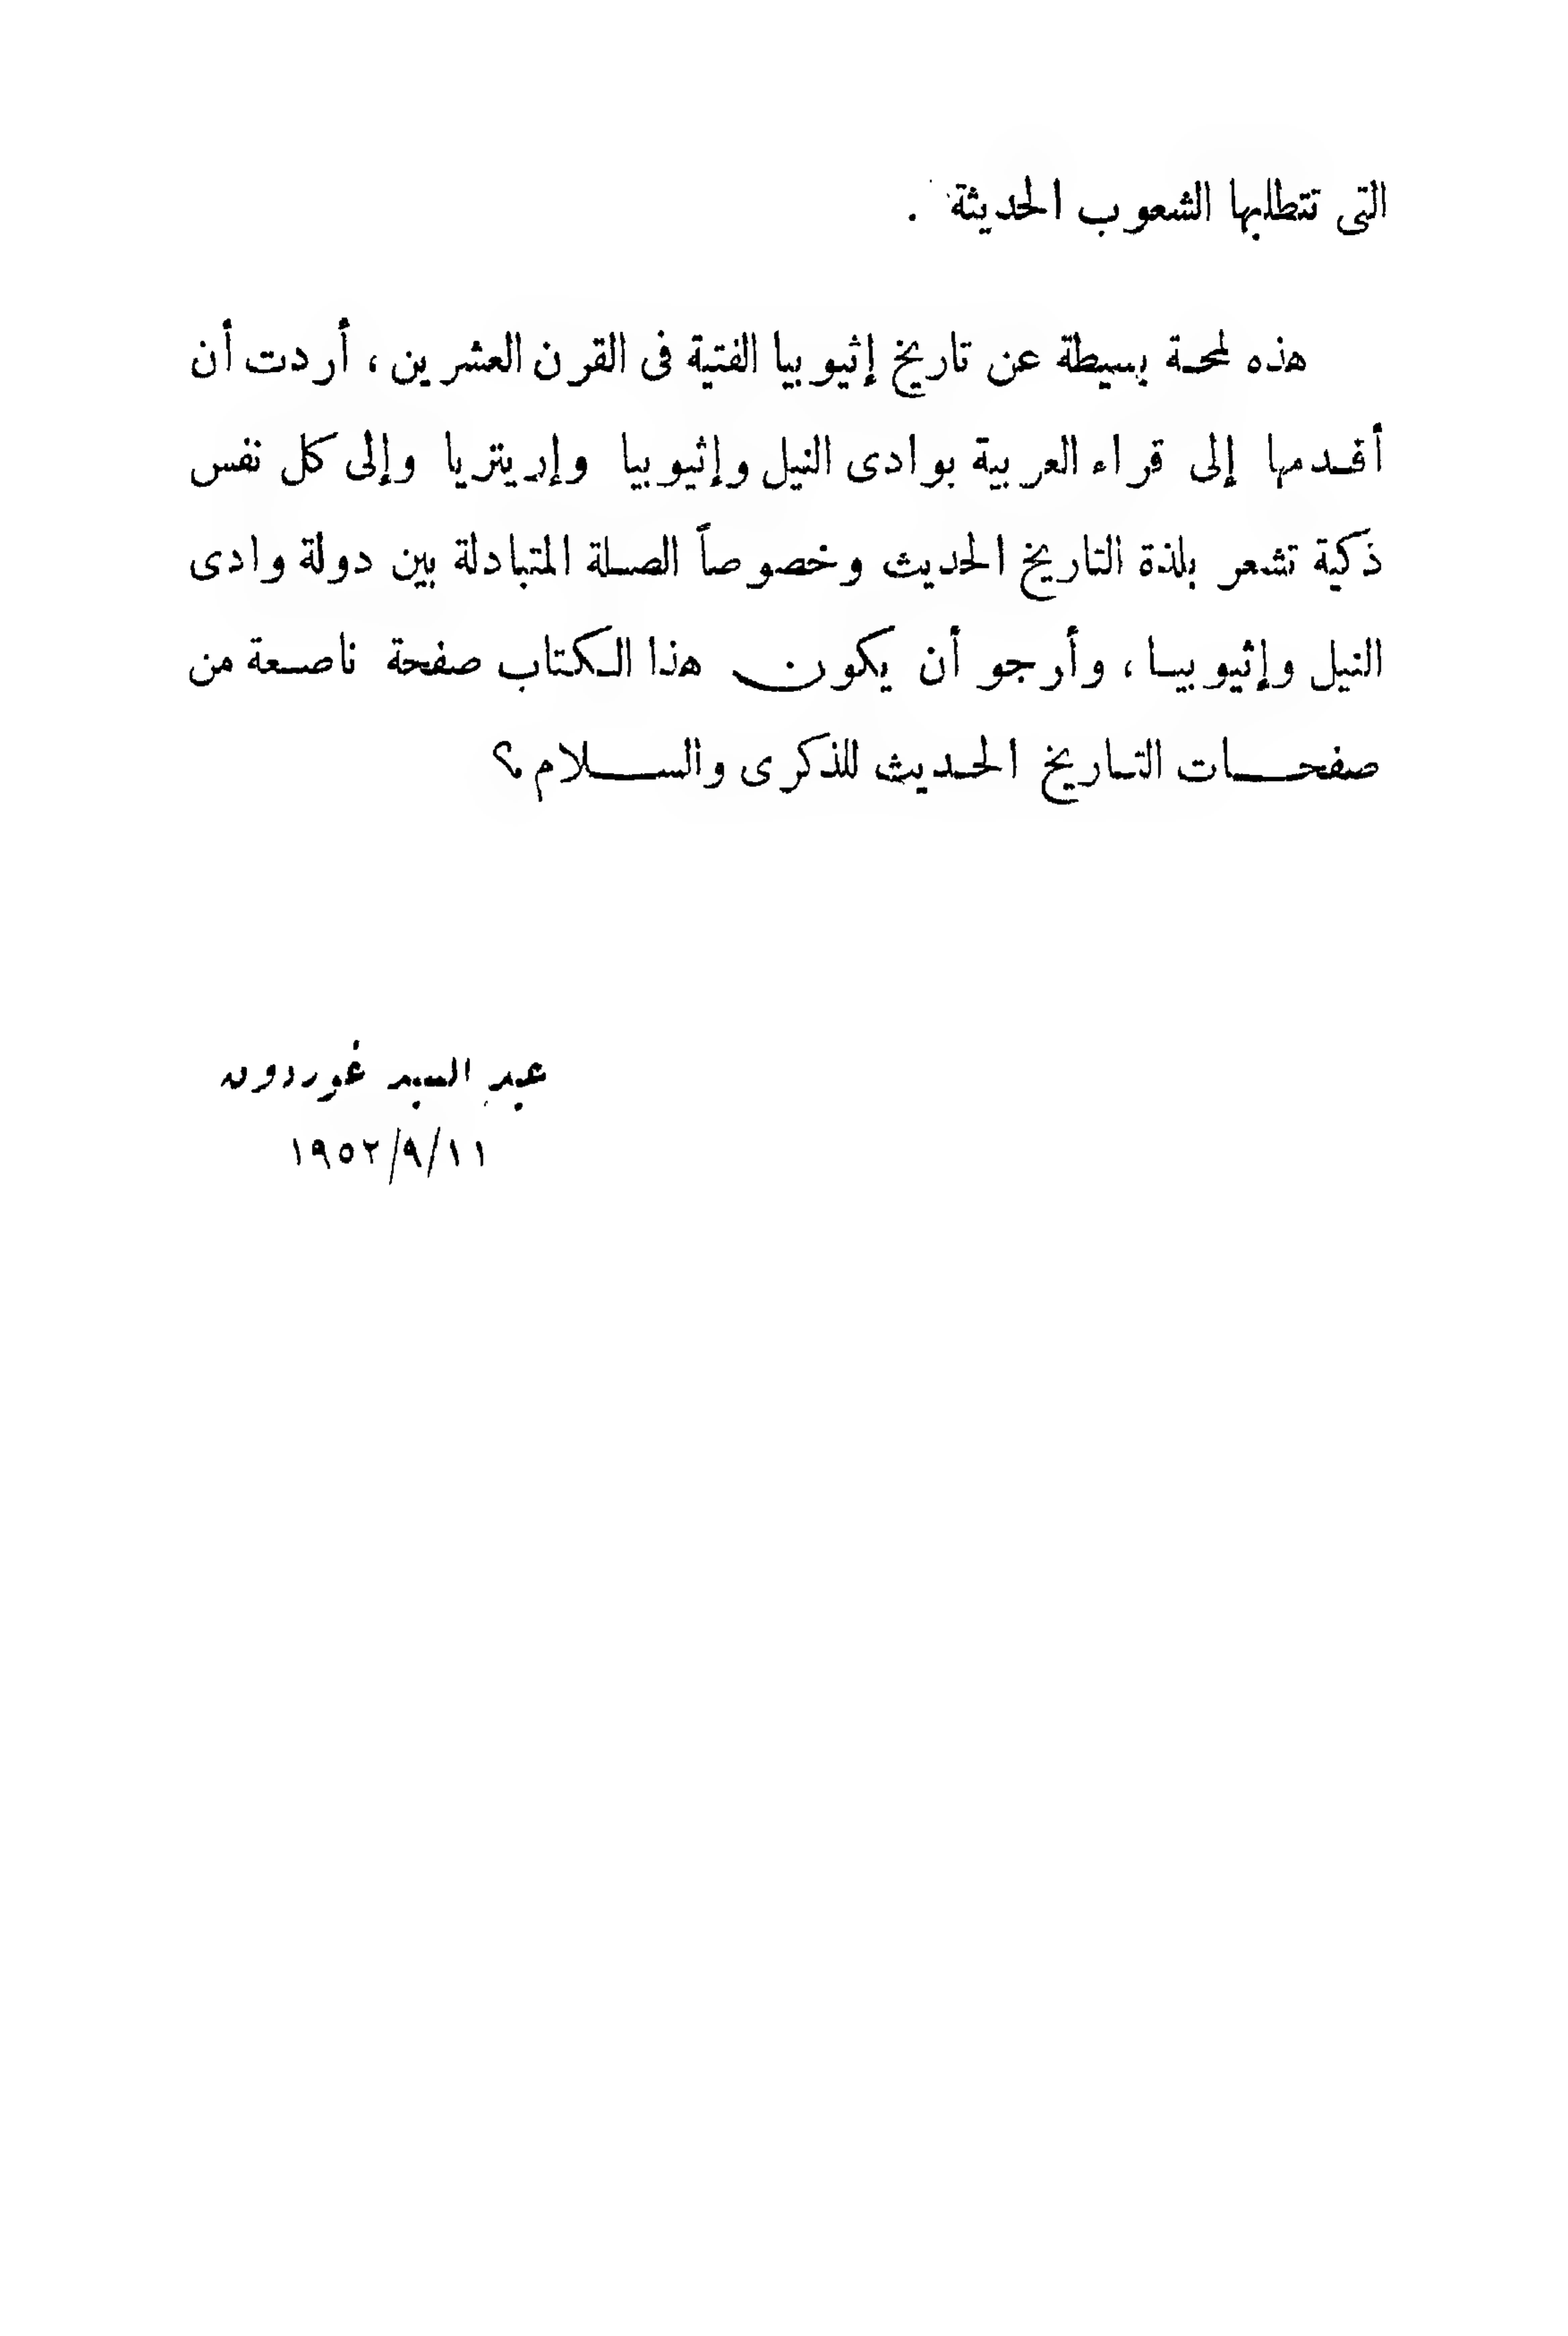 التى تتطلبها الشعوب الحديثة .
هذه لمحة بسيطة عن تاريخ إثيوبيا الفتية فى القرن العشرين ، أردت أن
أقدمها إلى قراء العربية بوادى النيل وإثيوبيا وإريتريا وإلى كل نفس
ذكية تشعر بلذة التاريخ الحديث وخصوصاً الصلة المتبادلة بين دولة وادى
النيل وإثيوبيا ، وأرجو أن يكون هذا الكتاب صفحة ناصعة من
صفحات التاريخ الحديث للذكرى والسلام ؟
عبد السيد غوردون
١٩٥٢/٩/١١